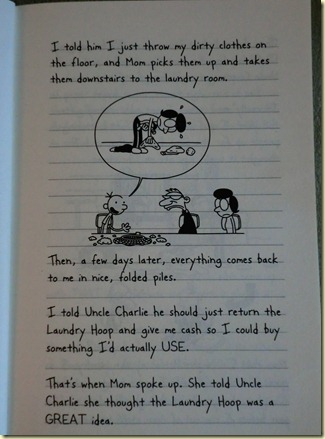 I told him I just throw my dirty clothes on
the floor, and Mom picks them up and takes
them downstairs to the laundry room.
Then, a few days later, everything comes back
to me in nice, folded piles.
I told Uncle Charlie he should just return the
Laundry Hoop and give me cash so I could buy
something I'd actually USE.
That's when Mom spoke up. She told Uncle
Charlie she thought the Laundry Hoop was a
GREAT idea.